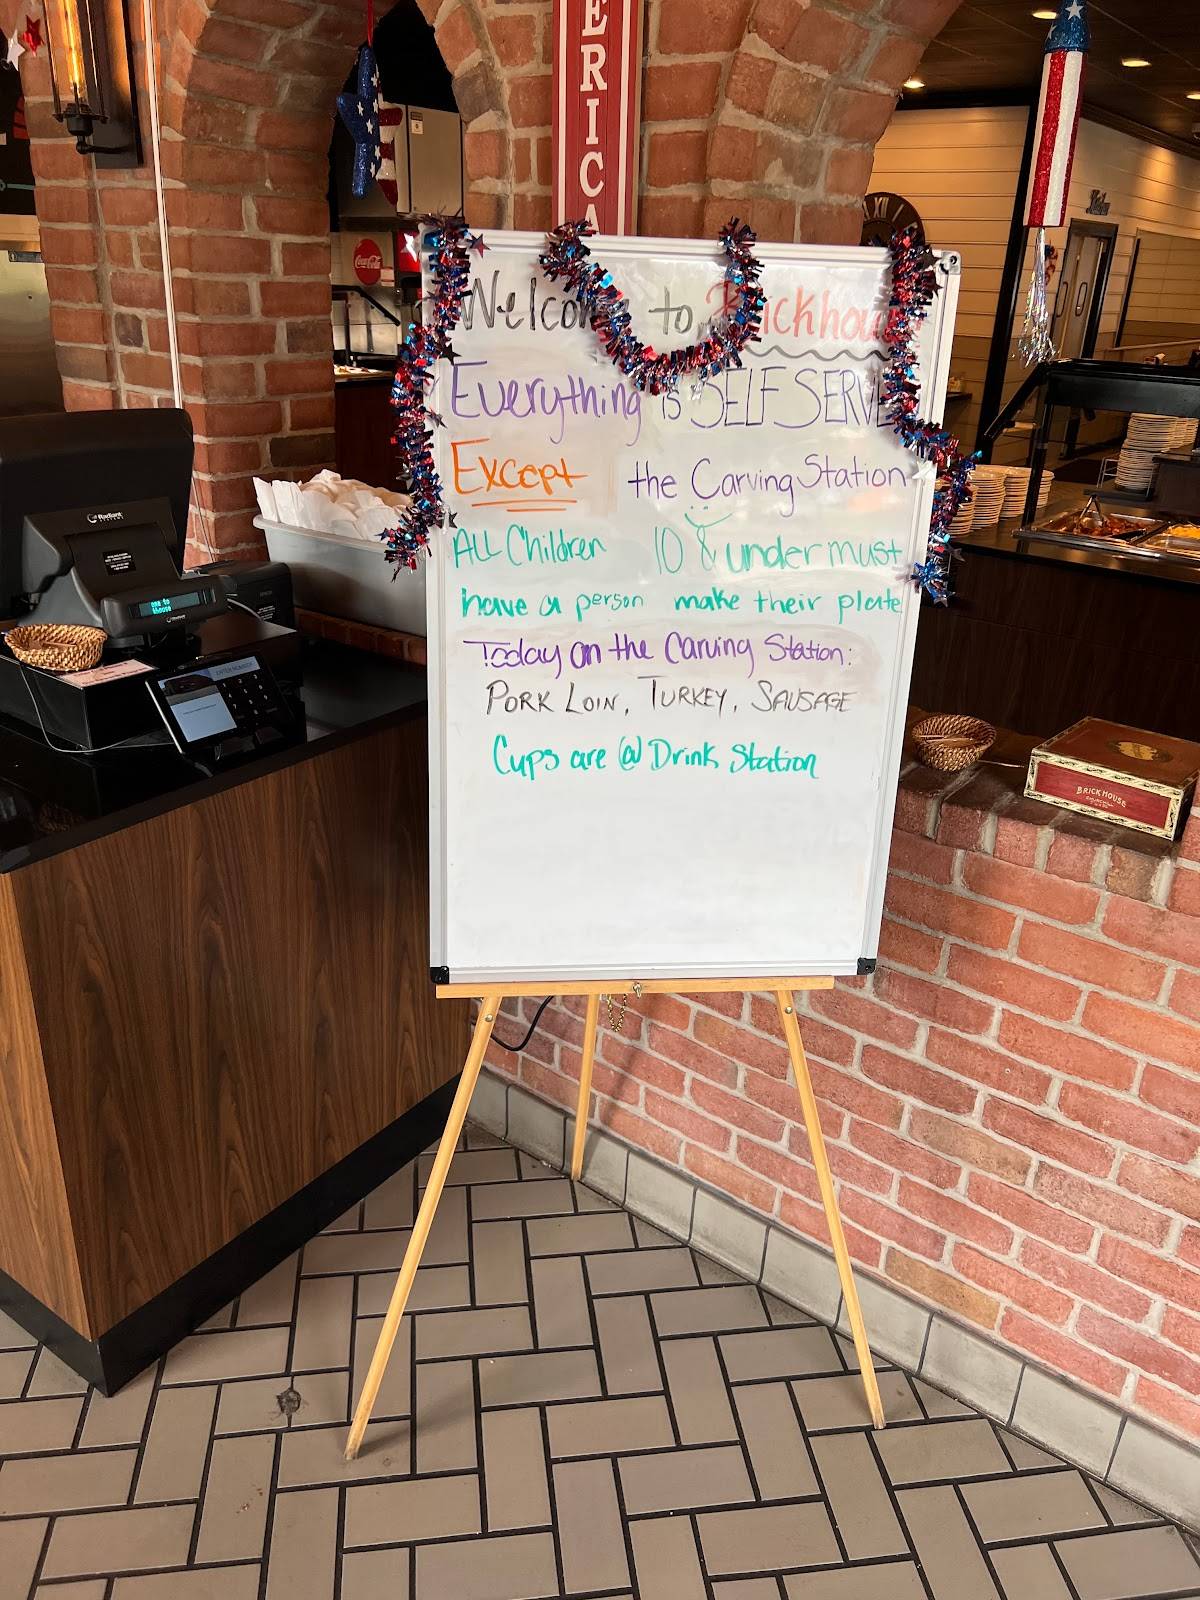 ERICA
Coca-Cola
XII
Welcome to Brickhouse
Everything is SELF SERVE
Except the Carving Station
ALL Children 10 & under must
have a person make their plate
Today on the Carving Station:
PORK LOIN, TURKEY, SAUSAGE
Cups are @ Drink Station
Radiant
EPSON
BRICK HOUSE